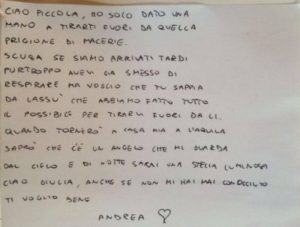 CIAO PICCOLA, HO SOLO DATO UNA
MANO A TIRARTI FUORI DA QUELLA
PRIGIONE DI MACERIE.
SCUSA SE SIAMO ARRIVATI TARDI
PURTROPPO AVEVI GIÀ SMESSO DI
RESPIRARE MA VOGLIO CHE TU SAPPIA
DA LASSU' CHE ABBIAMO FATTO TUTTO
IL POSSIBILE PER TIRARVI FUORI DA LI.
QUANDO TORNERO' A CASA MIA A L'AQUILA
SAPRO' CHE C'E' UN ANGELO CHE MI GUARDA
DAL CIELO E DI NOTTE SARAI UNA STELLA LUMINOSA
CIAO GIULIA, ANCHE SE NON MI HAI MAI CONOSCIUTO
TI VOGLIO BENE
ANDREA